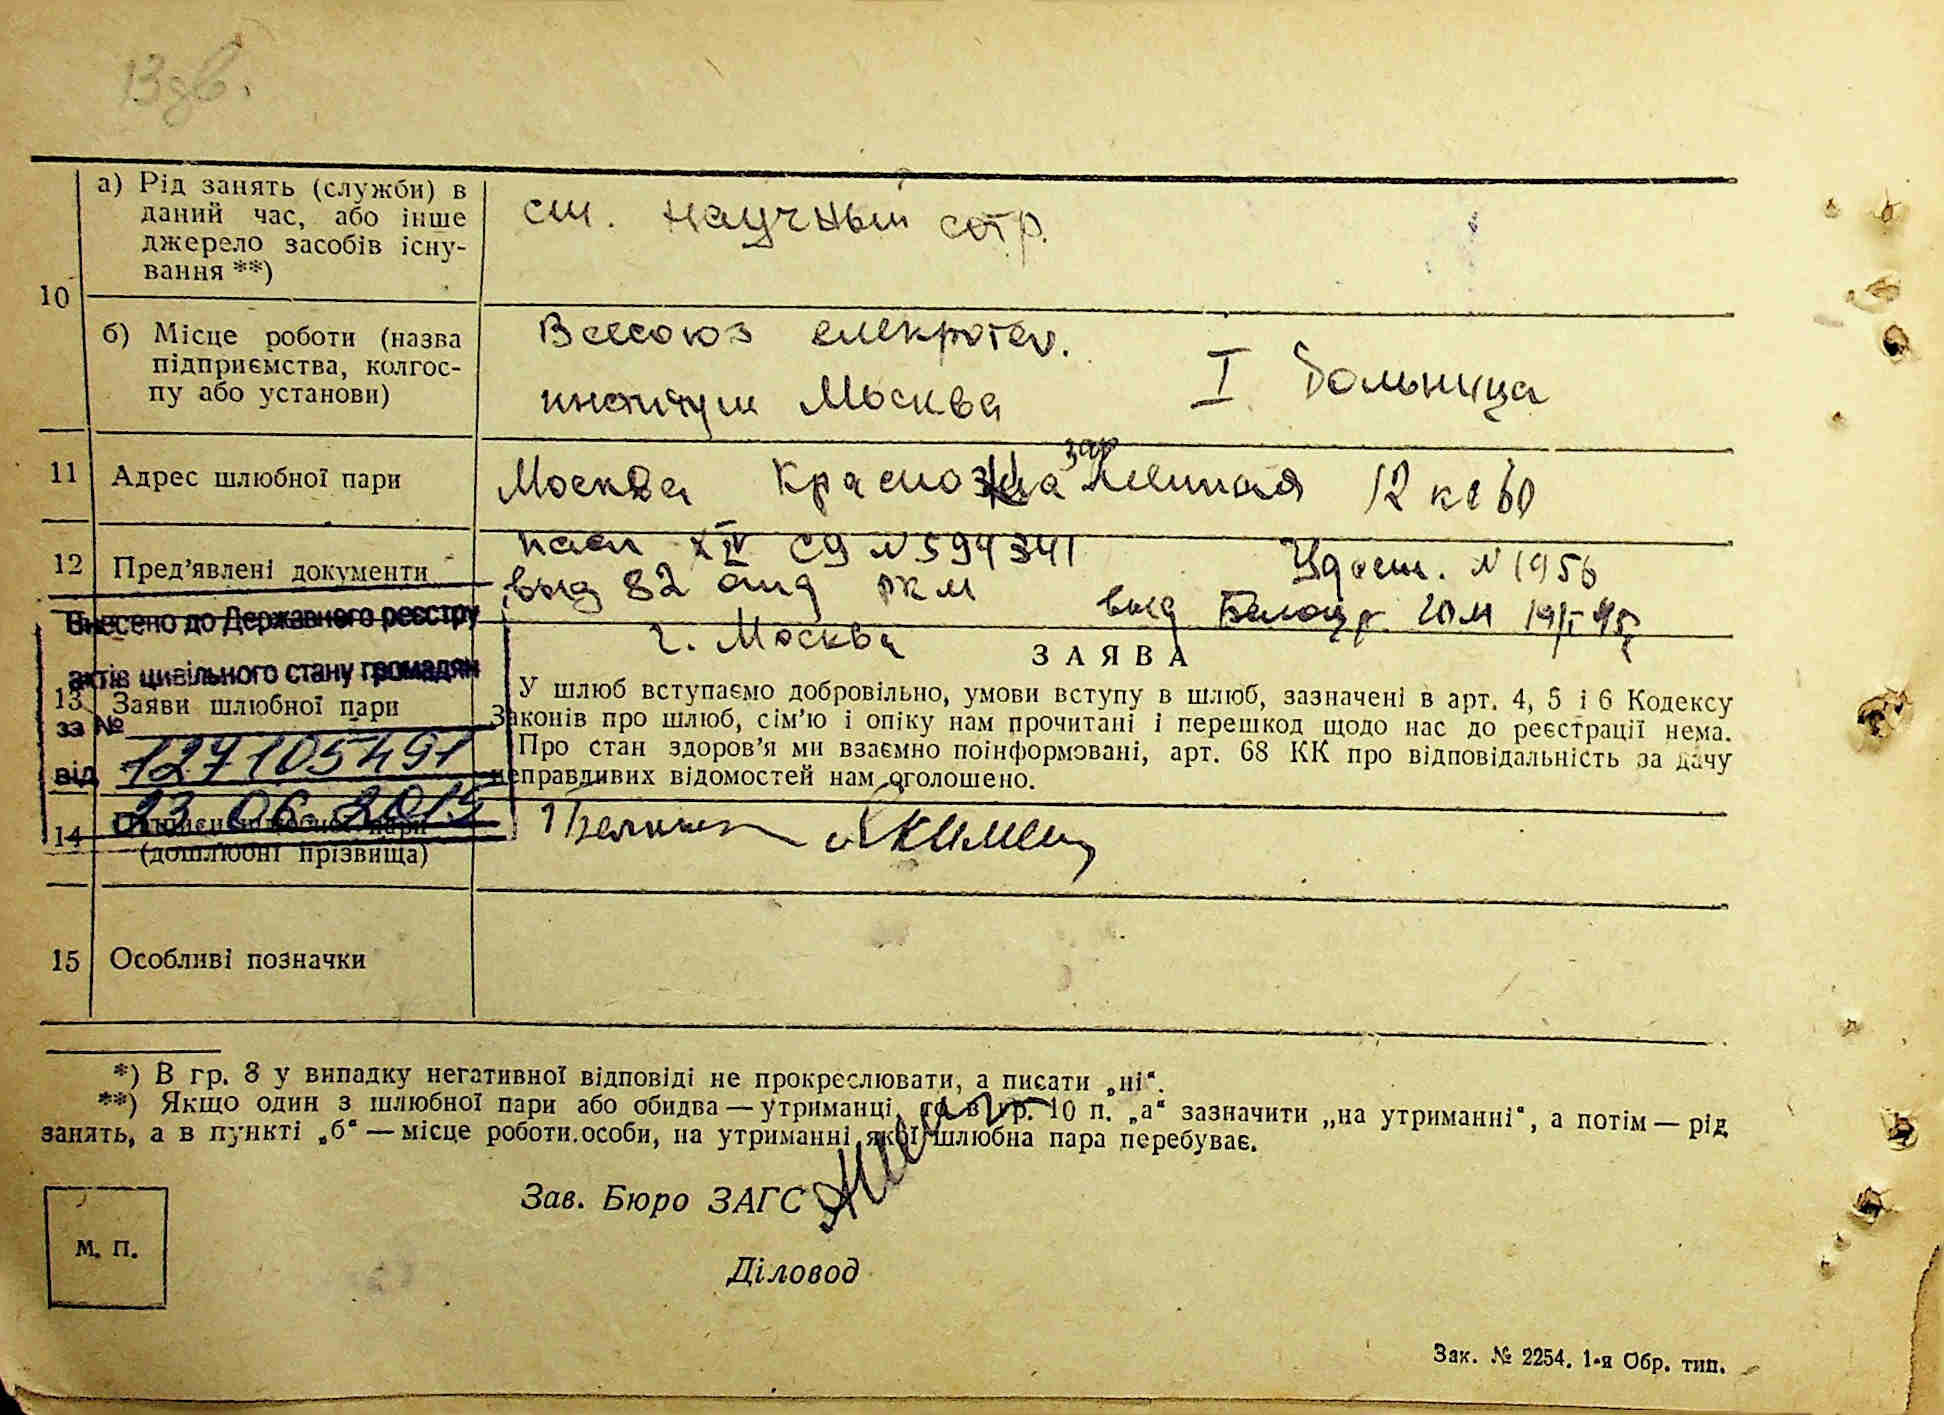 13
10
а) Рід занять (служби) в
даний час, або інше
джерело засобів існу-
вання **)
ст. научный сотр.
б) Місце роботи (назва
підприємства, колгос-
пу або установи)
Всесоюз електротех.
институт Москва
I больница
11
Адрес шлюбної пари
Москва Красноказарменная 12 кв 60
12
Пред'явлені документи
пасп XIV СЯ N 594341
выд 82 отд РКМ
г. Москва
Удост. N 1956
выд Белоцр. ГОМ 19/I 45
Внесено до Державного реєстру
актів цивільного стану громадян
за № 127105491
від 23.06.2015
13
Заяви шлюбної пари
ЗАЯВА
У шлюб вступаємо добровільно, умови вступу в шлюб, зазначені в арт. 4, 5 і 6 Кодексу
Законів про шлюб, сім'ю і опіку нам прочитані і перешкод щодо нас до реєстрації нема.
Про стан здоров'я ми взаємно поінформовані, арт. 68 КК про відповідальність за дачу
неправдивих відомостей нам оголошено.
14
(дошлюбні прізвища)
Якимец
15
Особливі позначки
*) В гр. 8 у випадку негативної відповіді не прокреслювати, а писати „ні“.
**) Якщо один з шлюбної пари або обидва — утриманці, то в гр. 10 п. „а“ зазначити „на утриманні“, а потім — рід
занять, а в пункті „б“ — місце роботи особи, на утриманні якої шлюбна пара перебуває.
Зав. Бюро ЗАГС
М. П.
Діловод
Зак. № 2254. 1-я Обр. тип.